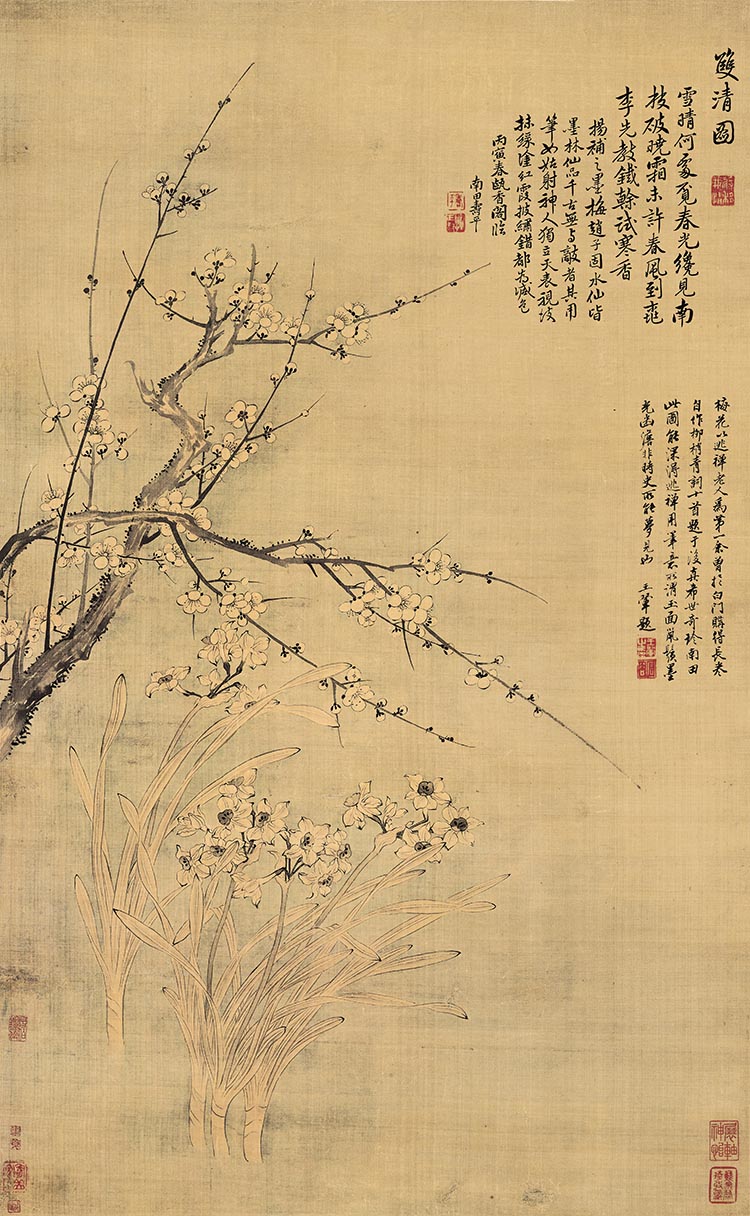 雙清圖
雪晴何處覓春光纔見南
枝破曉霜未許春風到桃
李先教鐵幹試寒香
楊補之墨梅趙子固水仙皆
墨林仙品千古無與敵者其用
筆如姑射神人獨立天表視後
抹綠塗紅霞披繡錯都為減色
丙寅春甌香閣臨
南田壽平
梅花以逃禪老人為第一余曾於白門購得長卷
自作柳梢青詞十首題于後真希世奇珍南田
此圖能深得逃禪用筆意所謂玉面鼠鬚墨
光幽澹非時史所能夢見也 王翬題